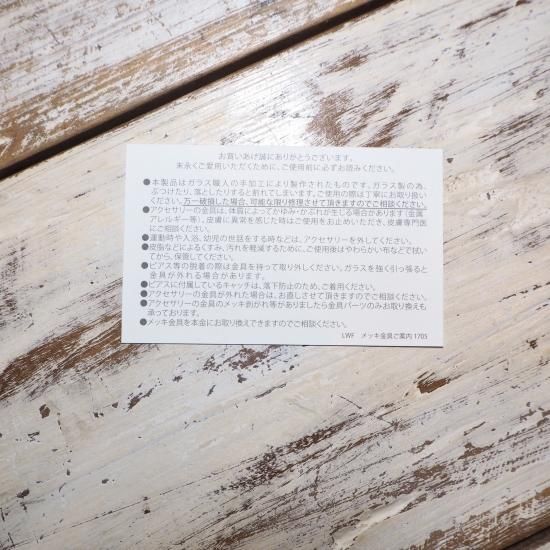 お買いあげ誠にありがとうございます。
末永くご愛用いただくために、ご使用前に必ずお読みください。
●本製品はガラス職人の手加工により製作されたものです。ガラス製の為、
ぶつけたり、落としたりすると割れてしまいます。ご使用の際は丁寧にお取り扱い
ください。万一破損した場合、可能な限り修理させて頂きますのでご相談ください。
●アクセサリーの金具は、体質によってかゆみ・かぶれが生じる場合があります(金属
アレルギー等)。皮膚に異常を感じた時はご使用をお止めいただき、皮膚専門医
にご相談ください。
●運動時や入浴、幼児の世話をする時などは、アクセサリーを外してください。
●皮脂などによるくすみ、汚れを軽減するために、ご使用後はやわらかい布などで拭い
てから、保管してください。
●ピアス等の脱着の際は金具を持って取り外しください。ガラスを強く引っ張ると
金具が外れる場合があります。
●ピアスに付属しているキャッチは、落下防止のため、ご着用ください。
●アクセサリーの金具が外れた場合は、お直しさせて頂きますのでご相談ください。
●アクセサリーの金具のメッキ剥がれ等がありましたら金具パーツのみお取り換えも
承っております。
●メッキ金具を本金にお取り換えできますのでご相談ください。
LWF メッキ金具ご案内 1705